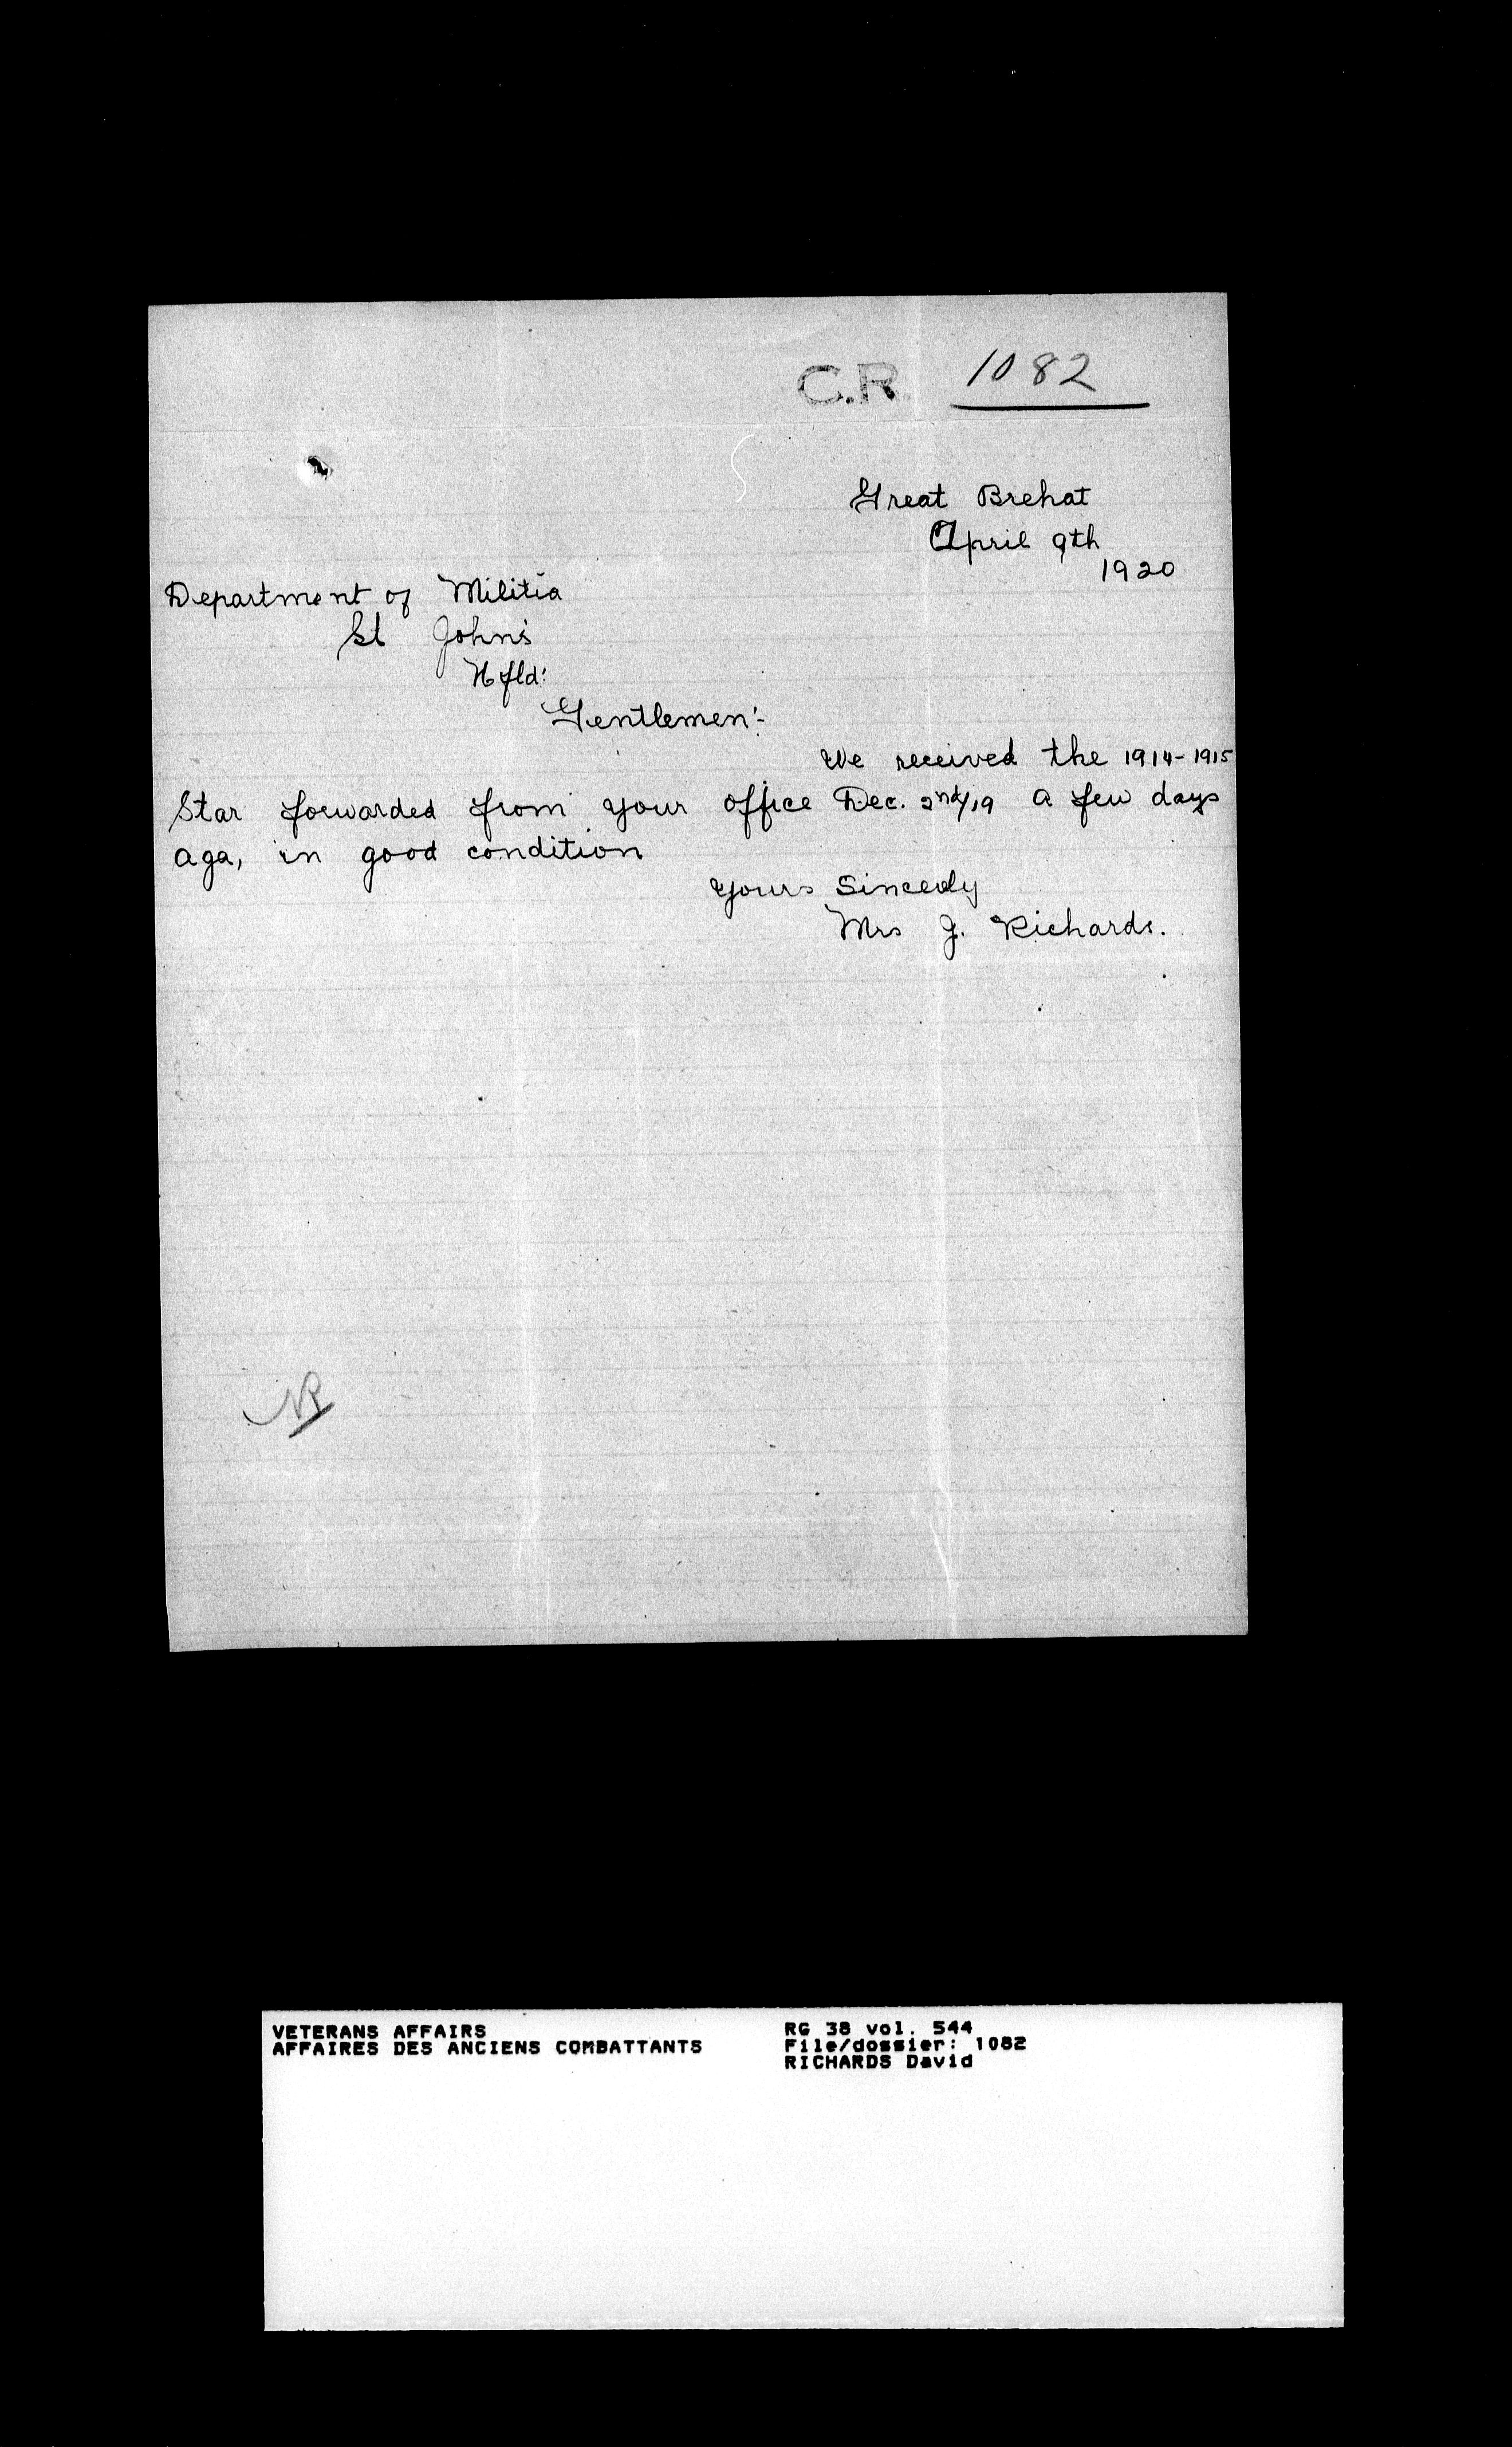 C.R. 1082
Great Brehat
April 9th
1920
Department of Militia
St John's
Nfld:
Gentlemen:-
We received the 1914-1915
Star forwarded from your office Dec. 2nd/19 a few days
aga, in good condition
Yours Sincerly
Mrs J. Richards.
NR
VETERANS AFFAIRS
AFFAIRES DES ANCIENS COMBATTANTS
RG 38 vol. 544
File/dossier: 1082
RICHARDS David